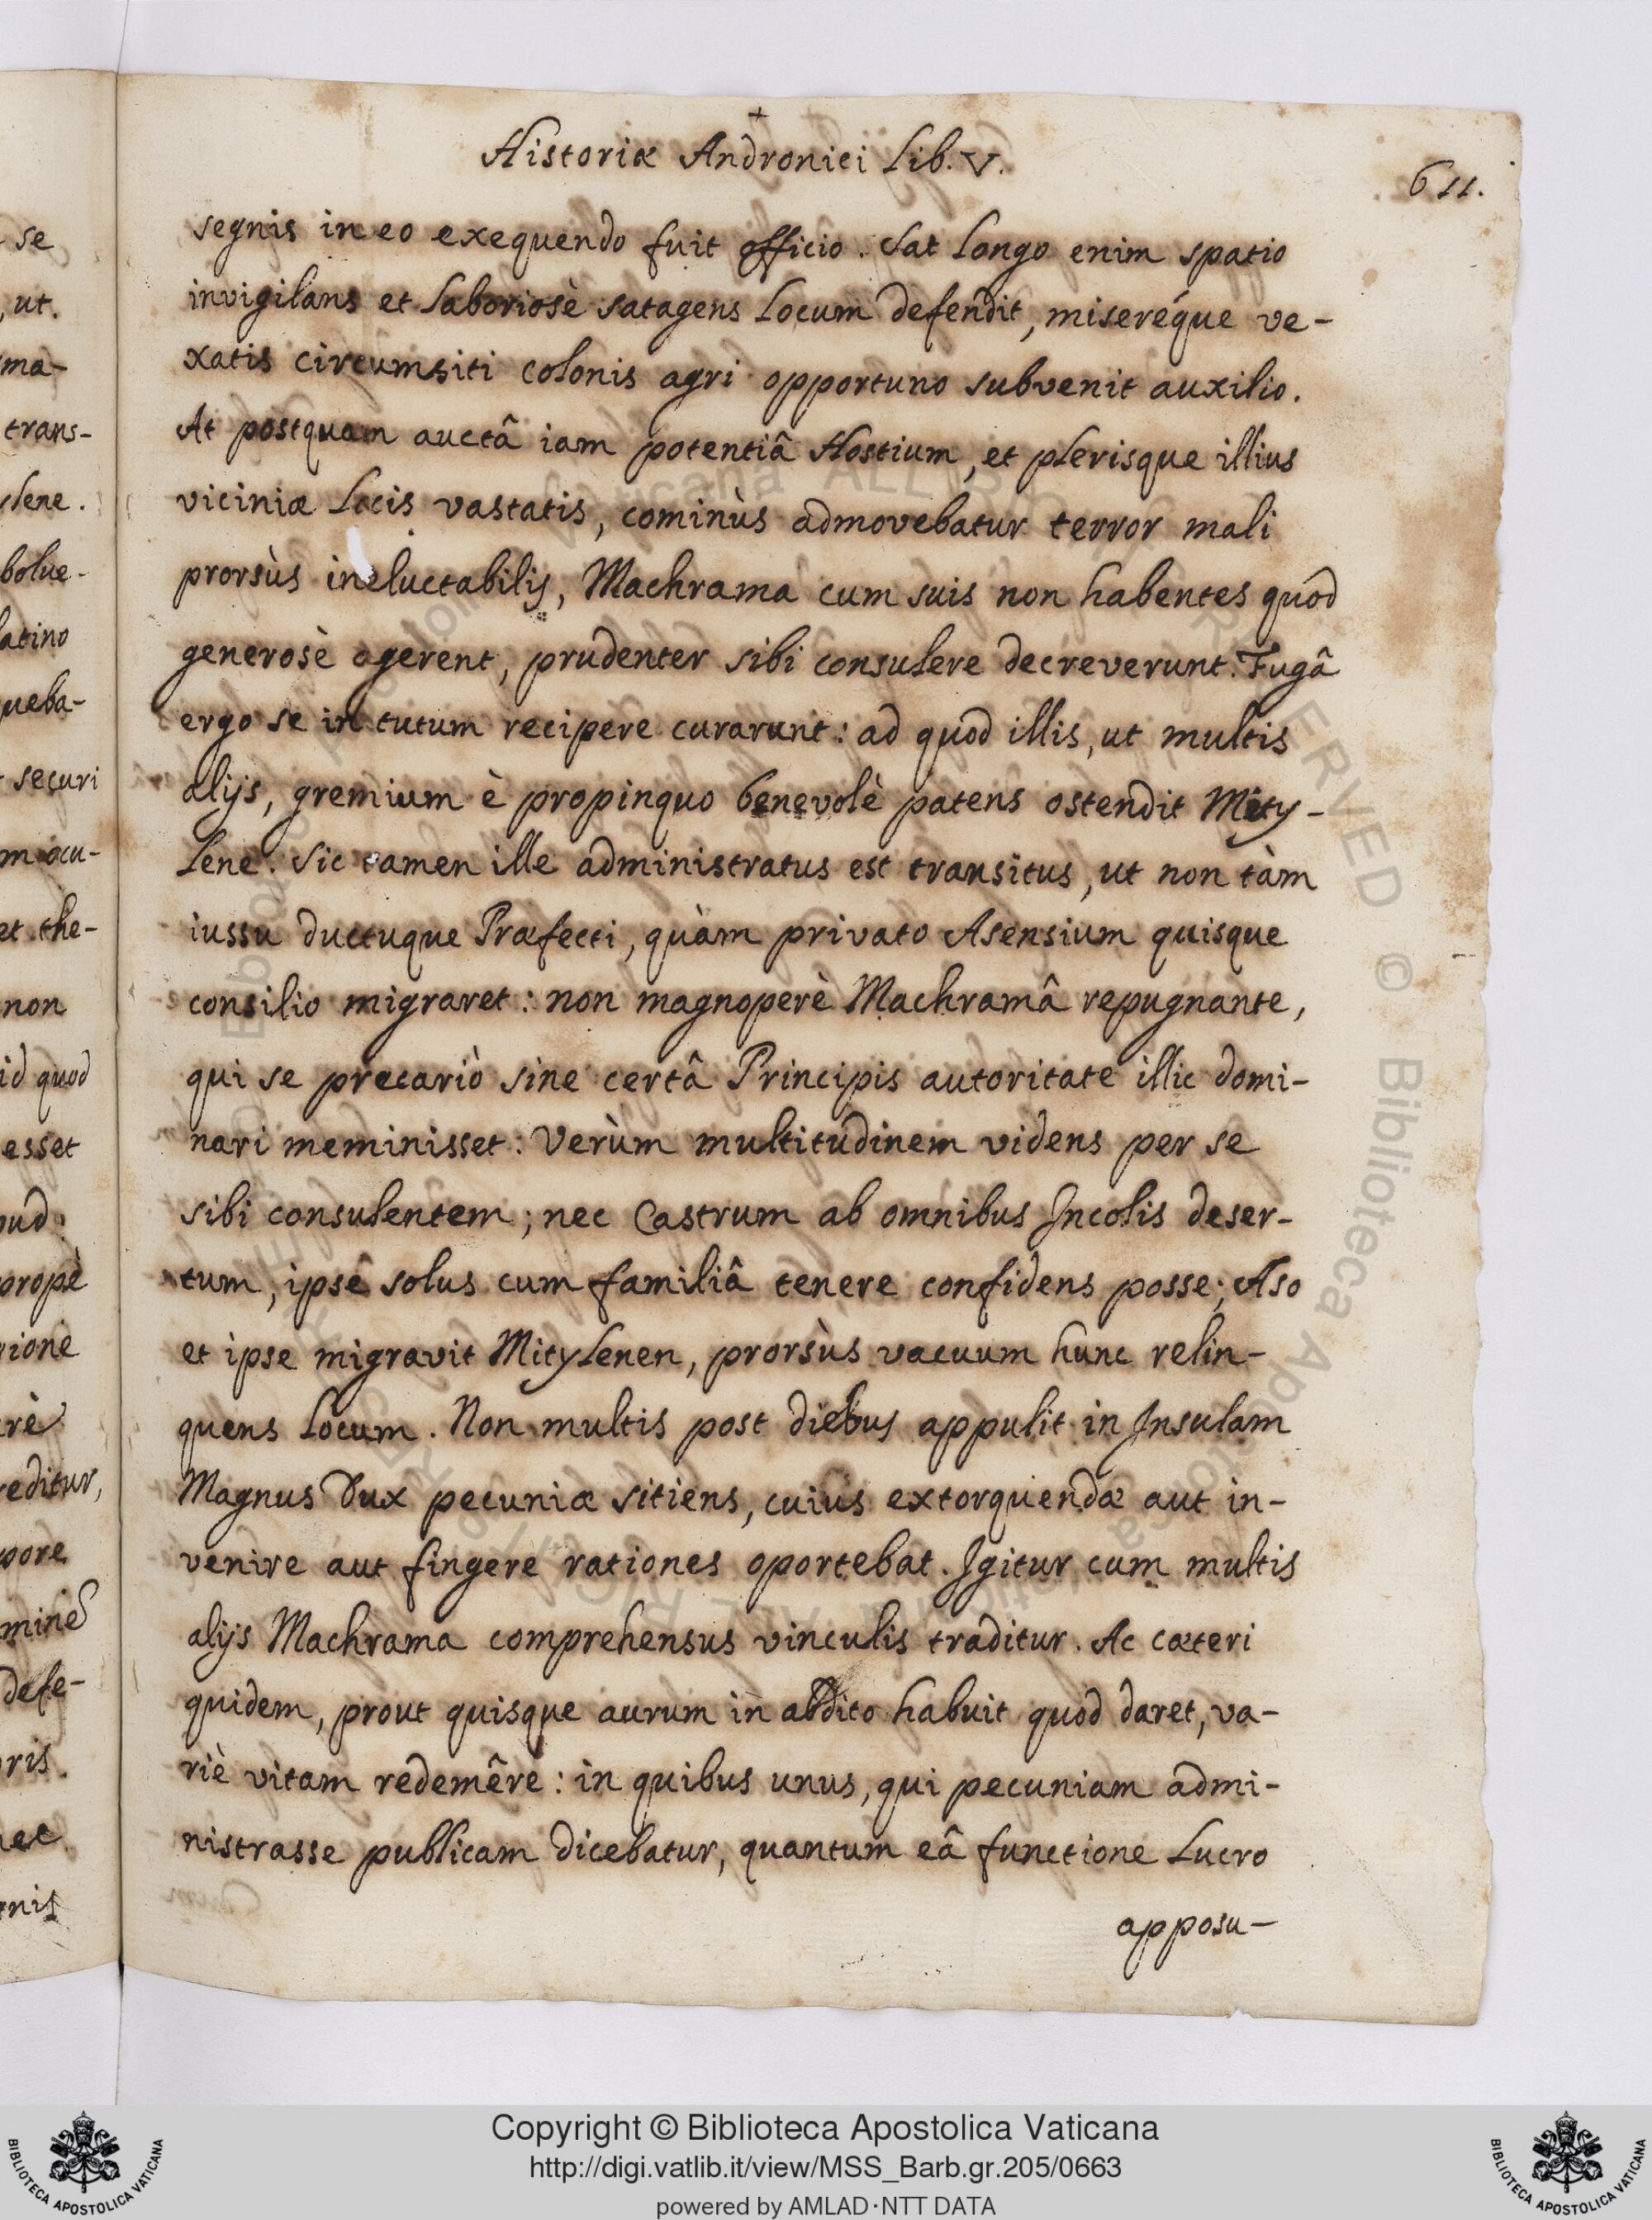 Historiæ Andronici Lib. V.
611.
segnis in eo exequendo fuit officio. Sat longo enim spatio
invigilans et laboriosè satagens locum defendit, miseréque ve-
xatis circumsiti colonis agri opportuno subvenit auxilio.
At postquam auctâ iam potentiâ Hostium, et plerisque illius
viciniæ locis vastatis, cominùs admovebatur terror mali
prorsùs ineluctabilis, Machrama cum suis non habentes quod
generosè agerent, prudenter sibi consulere decreverunt. Fugâ
ergo se in tutum recipere curarunt: ad quod illis, ut multis
alijs, gremium è propinquo benevolè patens ostendit Mity-
lene. Sic tamen ille administratus est transitus, ut non tàm
iussu ductuque Præfecti, quàm privato Asensium quisque
consilio migraret: non magnoperè Machramâ repugnante,
qui se precariò sine certâ Principis autoritate illic domi-
nari meminisset: Verùm multitudinem videns per se
sibi consulentem; nec Castrum ab omnibus Incolis deser-
tum, ipse solus cum familiâ tenere confidens posse; Aso
et ipse migravit Mitylenen, prorsùs vacuum hunc relin-
quens locum. Non multis post diebus appulit in Insulam
Magnus Dux pecuniæ sitiens, cuius extorquendæ aut in-
venire aut fingere rationes oportebat. Igitur cum multis
alijs Machrama comprehensus vinculis traditur. Ac cæteri
quidem, prout quisque aurum in abdito habuit quod daret, va-
riè vitam redemêre: in quibus unus, qui pecuniam admi-
nistrasse publicam dicebatur, quantum eâ functione lucro
apposu-
se
, ut.
ma-
trans-
lene.
bolue-
latino
ueba-
securi
m ocu-
et the-
non
id quod
esset
ud:
propè
ione
rè
reditur,
pore
mine
defe-
ris.
nec
gnis
Copyright © Biblioteca Apostolica Vaticana
http://digi.vatlib.it/view/MSS_Barb.gr.205/0663
powered by AMLAD·NTT DATA
BIBLIOTECA APOSTOLICA VATICANA
BIBLIOTECA APOSTOLICA VATICANA